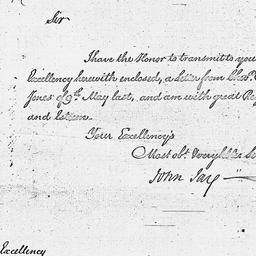 Sir
I have the Honor to transmit to you
Excellency herewith enclosed, a Letter from
Jones of 9th. May last, and am with great
and Esteem.
Your Excellency's
Most obt. & very hble
John Jay
Excellency